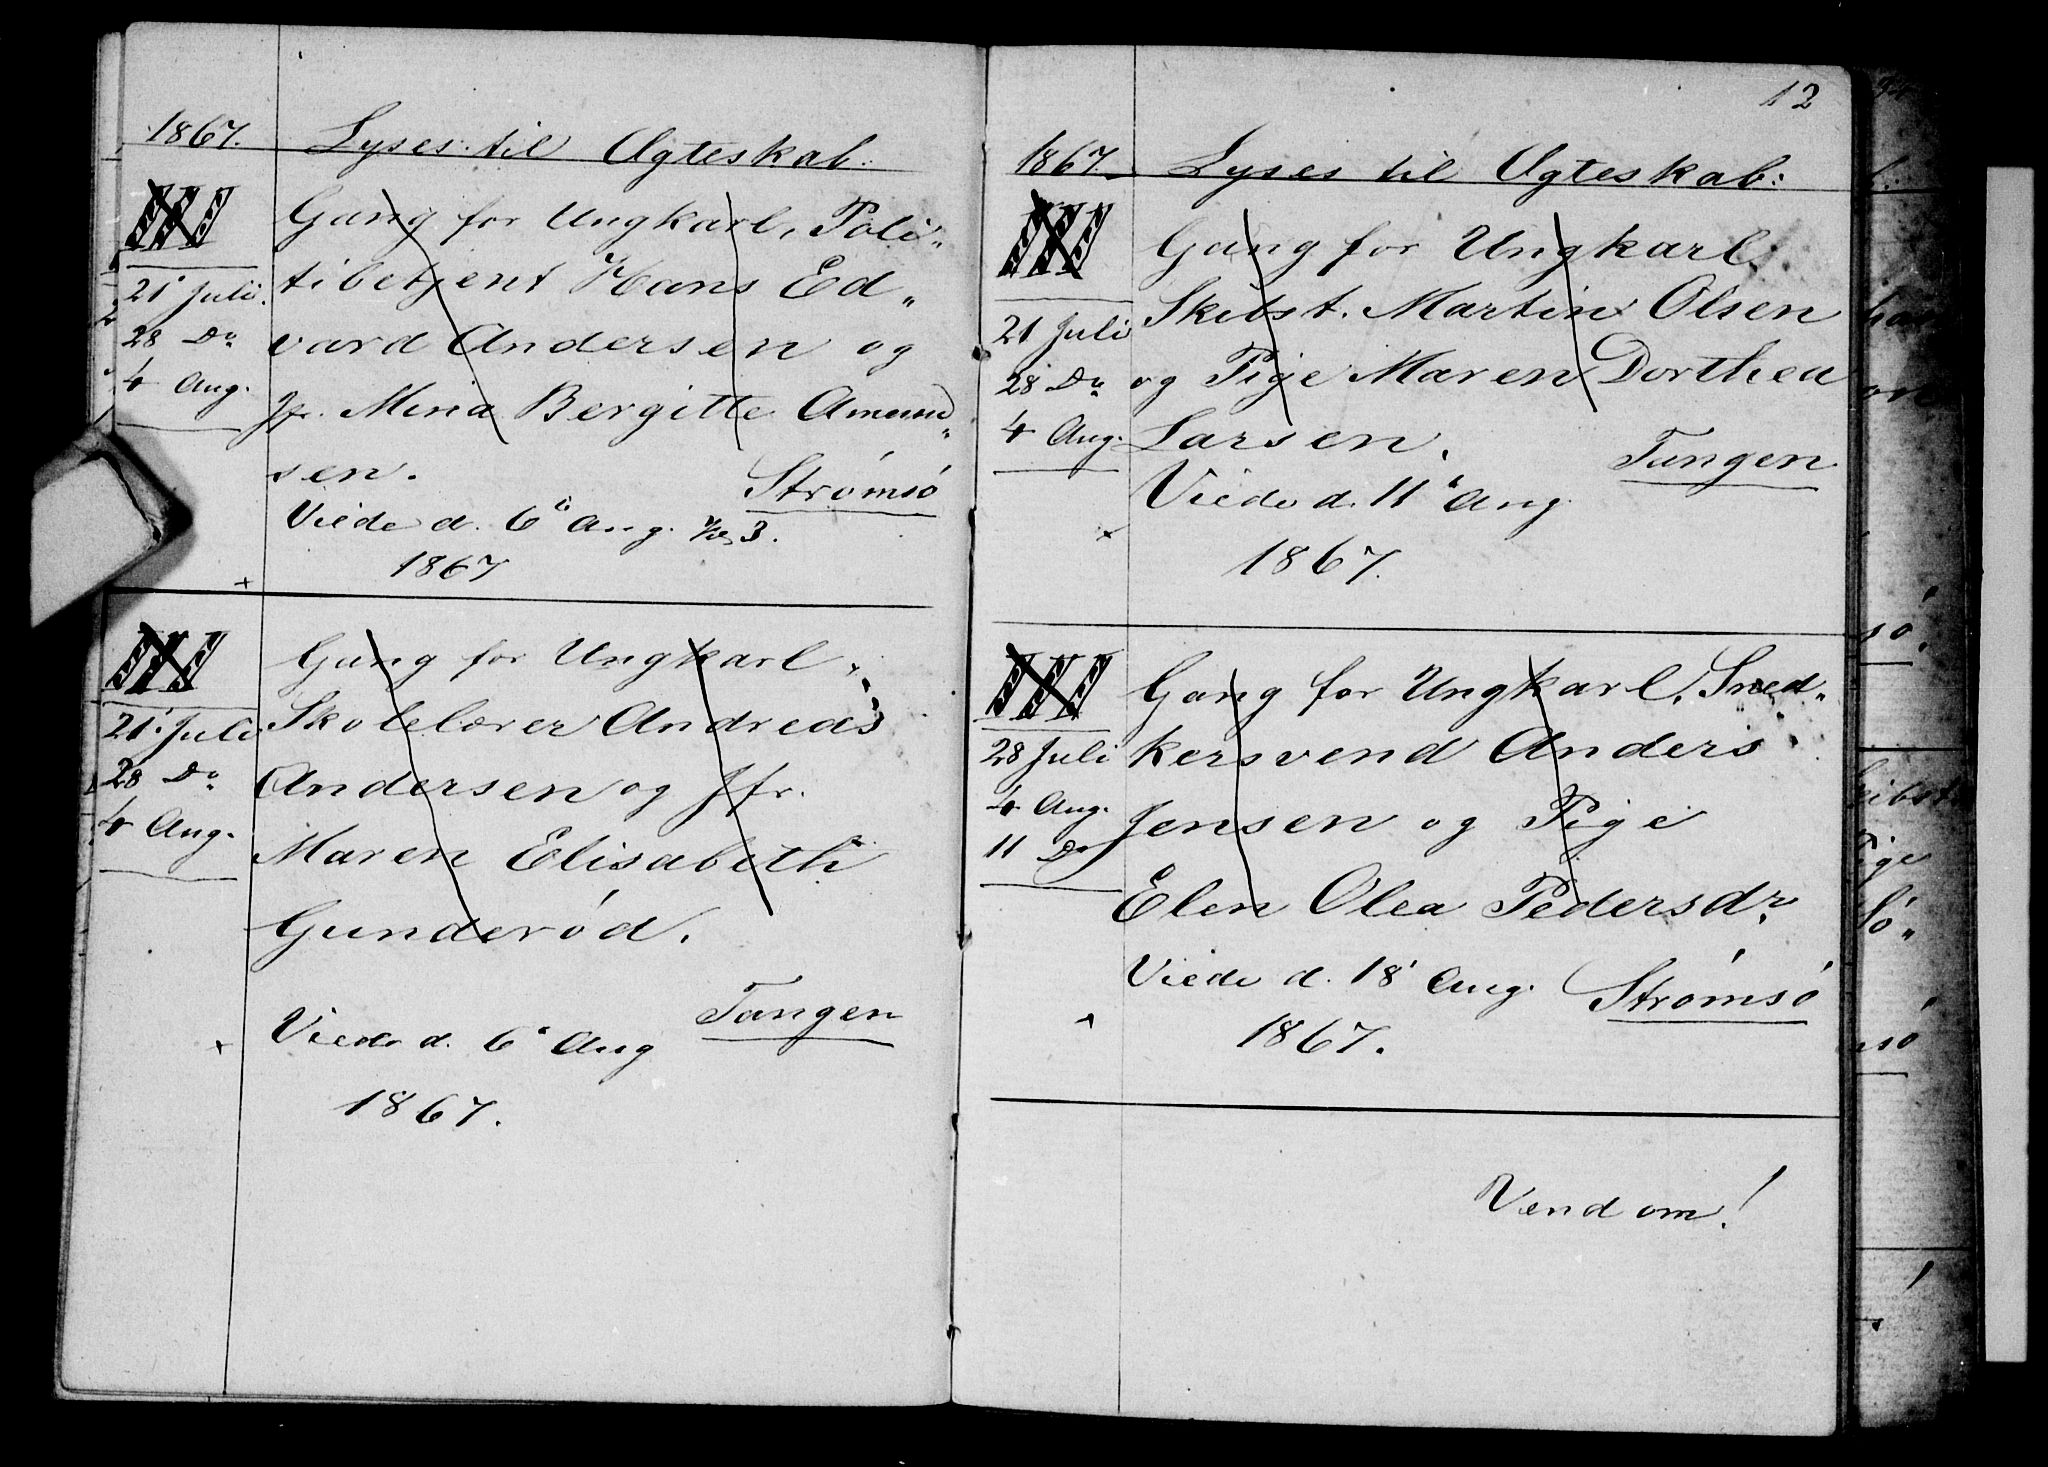 1867. Lyses til Ægteskab:
III Gang for Ungkarl, Poli„
21' Juli. tibetjent Hans Ed„
28 Do vard Andersen og
4 Aug. Jfr. Mina Bergitte Amund„
sen.
Strømsö
Viede d. 6' Aug. 3.
1867
III Gang for Ungkarl,
21' Juli Skolelærer Andreas
28 Do Andersen og Jfr.
4 Aug. Maren Elisabeth
Gunderöd.
Tangen
Viede d. 6' Aug
1867.
12
1867. Lyses til Ægteskab:
III Gang for Ungkarl
21 Juli Skibst. Martin Olsen
28 Do og Pige Maren Dorthea
4 Aug. Larsen.
Tangen
Viede d. 11' Aug
1867.
III Gang for Ungkarl, Sned„
28 Juli kersvend Anders
4 Aug. Jensen og Pige
11 Do
Elen Olea Pedersdr.
Viede d. 18' Aug. Strømsö
1867.
Vend om!